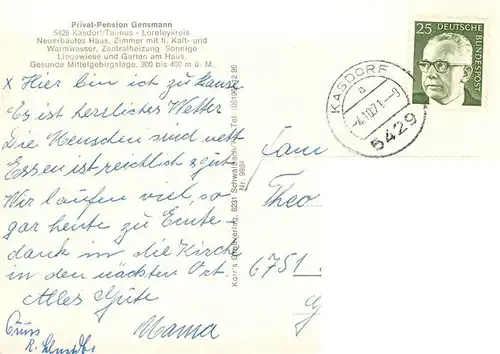 Privat-Pension Gensmann
5429 Kasdorf/Taunus - Loreleykreis
Neuerbautes Haus, Zimmer mit fl. Kalt- und
Warmwasser, Zentralheizung. Sonnige
Liegewiese und Garten am Hause.
Gesunde Mittelgebirgslage, 300 bis 400 m ü. M.
x Hier bin ich zu Hause
Es ist herrliches Wetter
Die Menschen sind nett
Essen ist reichlich & gut
Wir laufen viel, so-
gar heute zu Ernte-
dank in die Kirche
in den nächsten Ort.
Alles Gute
Mama
Gruss
Karr's Grußverlag, 6231 Schwalbach
Nr. 9884
25 DEUTSCHE BUNDESPOST
KASDORF
a
-4.10.71-9
5429
Fam
Theo
6751